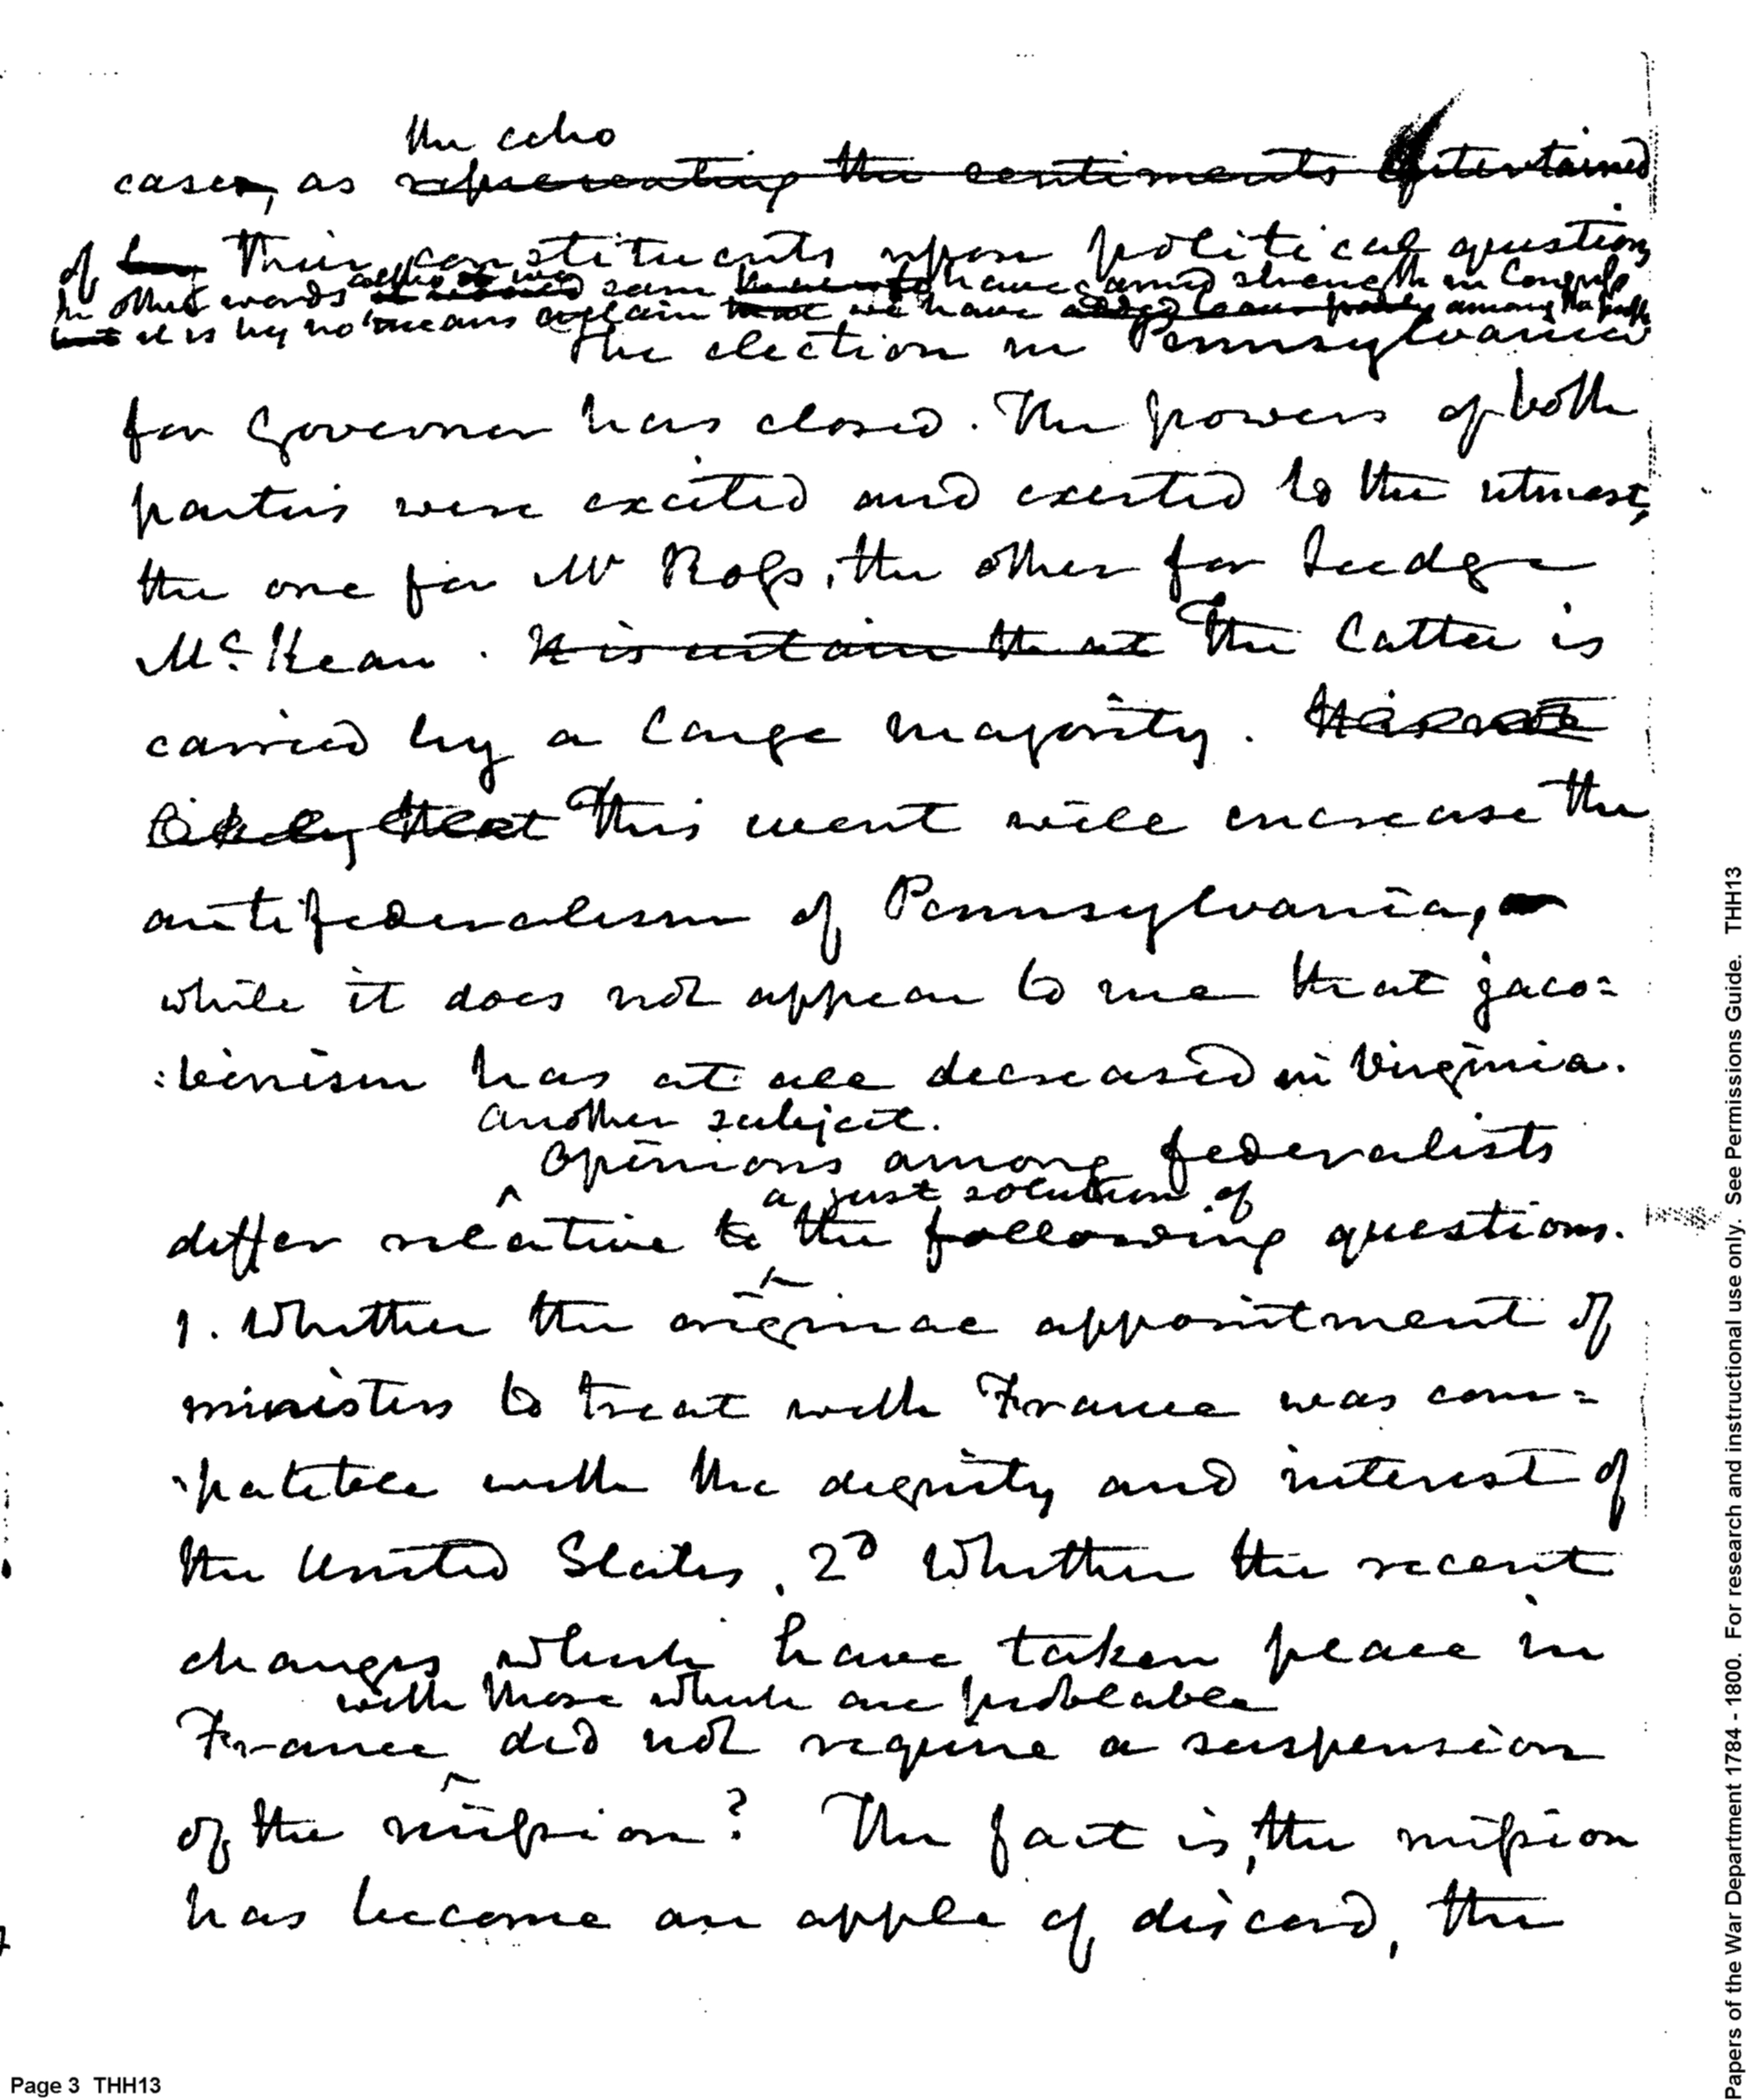 the echo
cases, as representing the sentiments entertained
of by their constituents upon political questions
In other words altho we seem to have gained strength in Congress
but it is by no means certain that we have added to our party among the people
The election in Pennsylvania
for Governor has closed. The powers of both
parties were excited and exerted to the utmost,
the one for Mr Ross, the other for Judge
McKean. It is certain that The latter is
carried by a large majority. It is not
likely that This event will encrease the
antifederalism of Pennsylvania,
while it does not appear to me that jaco=
:binism has at all decreased in Virginia.
Another subject.
Opinions among federalists
a just solution of
differ relative to the following questions.
1. Whether the original appointment of
ministers to treat with France was com=
patible with the dignity and interest of
the United States, 2d Whether the recent
changes which have taken place in
with those which are probable
France did not require a suspension
of the mission? The fact is, the mission
has become an apple of discord, the
Page 3 THH13
Papers of the War Department 1784 - 1800. For research and instructional use only. See Permissions Guide. THH13